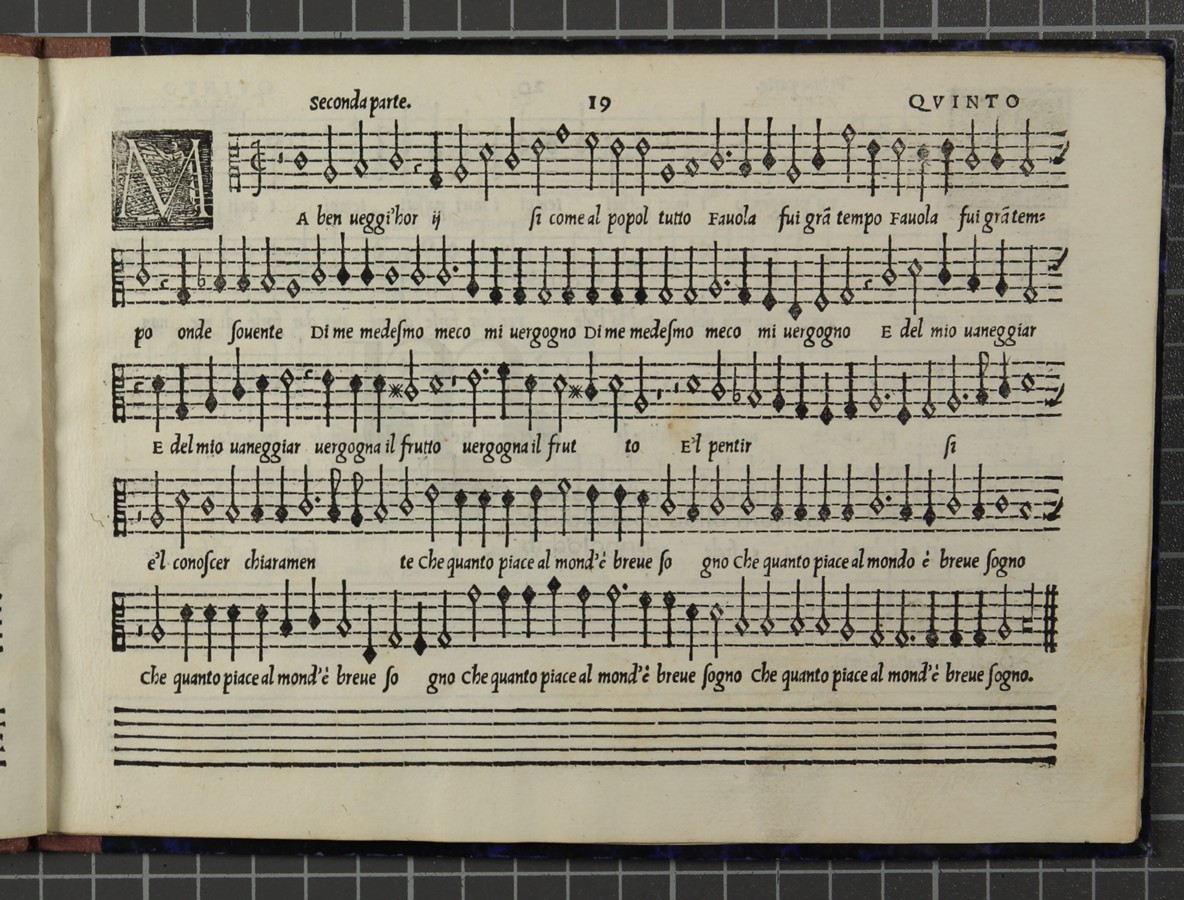 Seconda parte. 19 QVINTO
MA ben ueggi'hor ij si come al popol tutto Fauola fui grã tempo Fauola fui grãtem=
po onde souente Di me medesmo meco mi uergogno Di me medesmo meco mi uergogno E del mio uaneggiar
E del mio uaneggiar uergogna il frutto uergogna il frut to E'l pentir si
e'l conoscer chiaramen te Che quanto piace al mond'è breue so gno Che quanto piace al mondo è breue sogno
Che quanto piace al mond'è breue so gno Che quanto piace al mond'è breue sogno Che quanto piace al mond'è breue sogno.